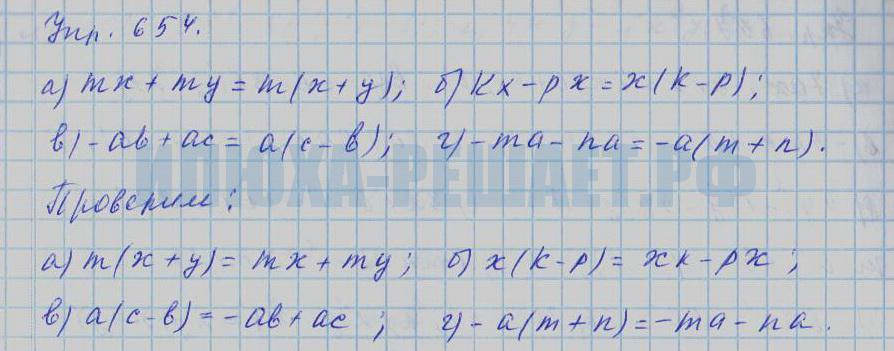 Упр. 654.
а) mx + my = m(x + y); б) kx - px = x(k - p);
в) -ab + ac = a(c - b); г) -ma - na = -a(m + n).
ИЛЮХА-РЕШАЕТ.РФ
Проверим:
а) m(x + y) = mx + my; б) x(k - p) = xk - px;
в) a(c - b) = -ab + ac; г) -a(m + n) = -ma - na.